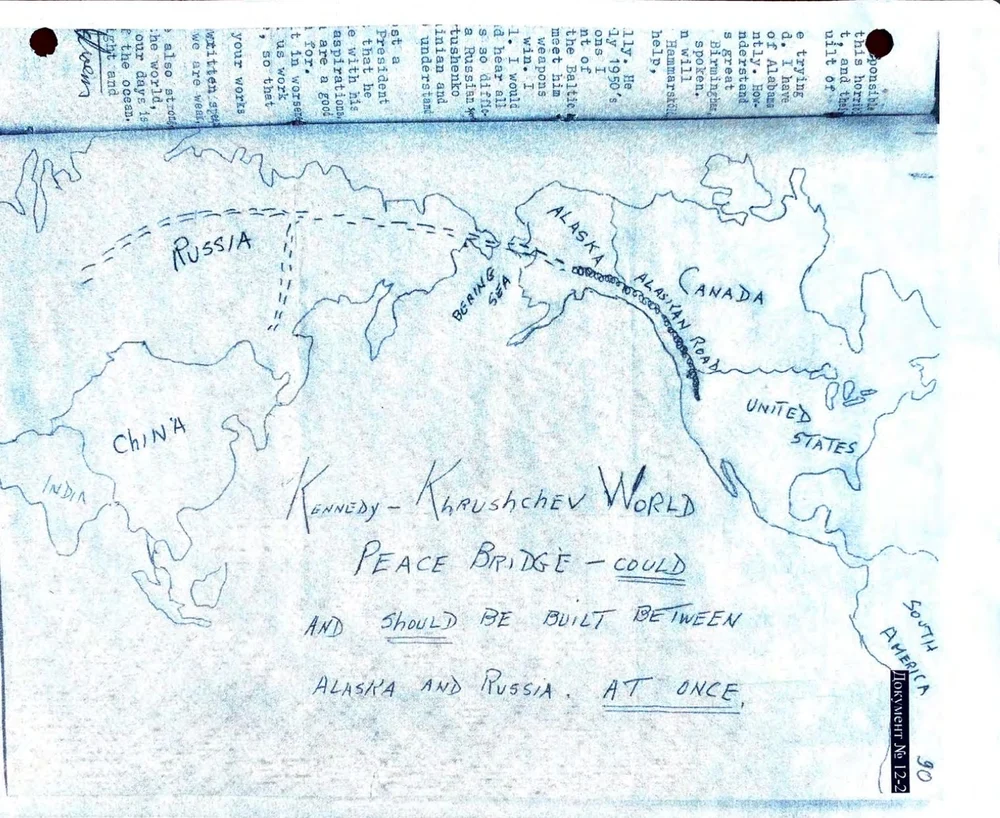 ponsible
this horri
t, and thei
uilt of
e trying
d. I have
of Alabama
ntly. How-
nderstand
s great
Birmingham,
spoken.
n will
Hammarskol
help,
lly. He
ly 1960's
ons I
nt of
the Baltic
meet him
weapons
win. I
l. I would
d hear all
s so diffic-
a Russian
tushenko
inian and
understand
st a
President
that he
e with his
aspirations
are a good
for.
t in worse
us work
, so that
your works
written
we are weak
, also strong
he world.
our days is
the ocean.
ght and
RUSSIA
ALASKA
BERING
SEA
ALASKAN ROAD
CANADA
CHINA
INDIA
UNITED
STATES
KENNEDY - KHRUSHCHEV WORLD
PEACE BRIDGE - COULD
AND SHOULD BE BUILT BETWEEN
ALASKA AND RUSSIA. AT ONCE.
SOUTH
AMERICA
Документ № 12-2
90